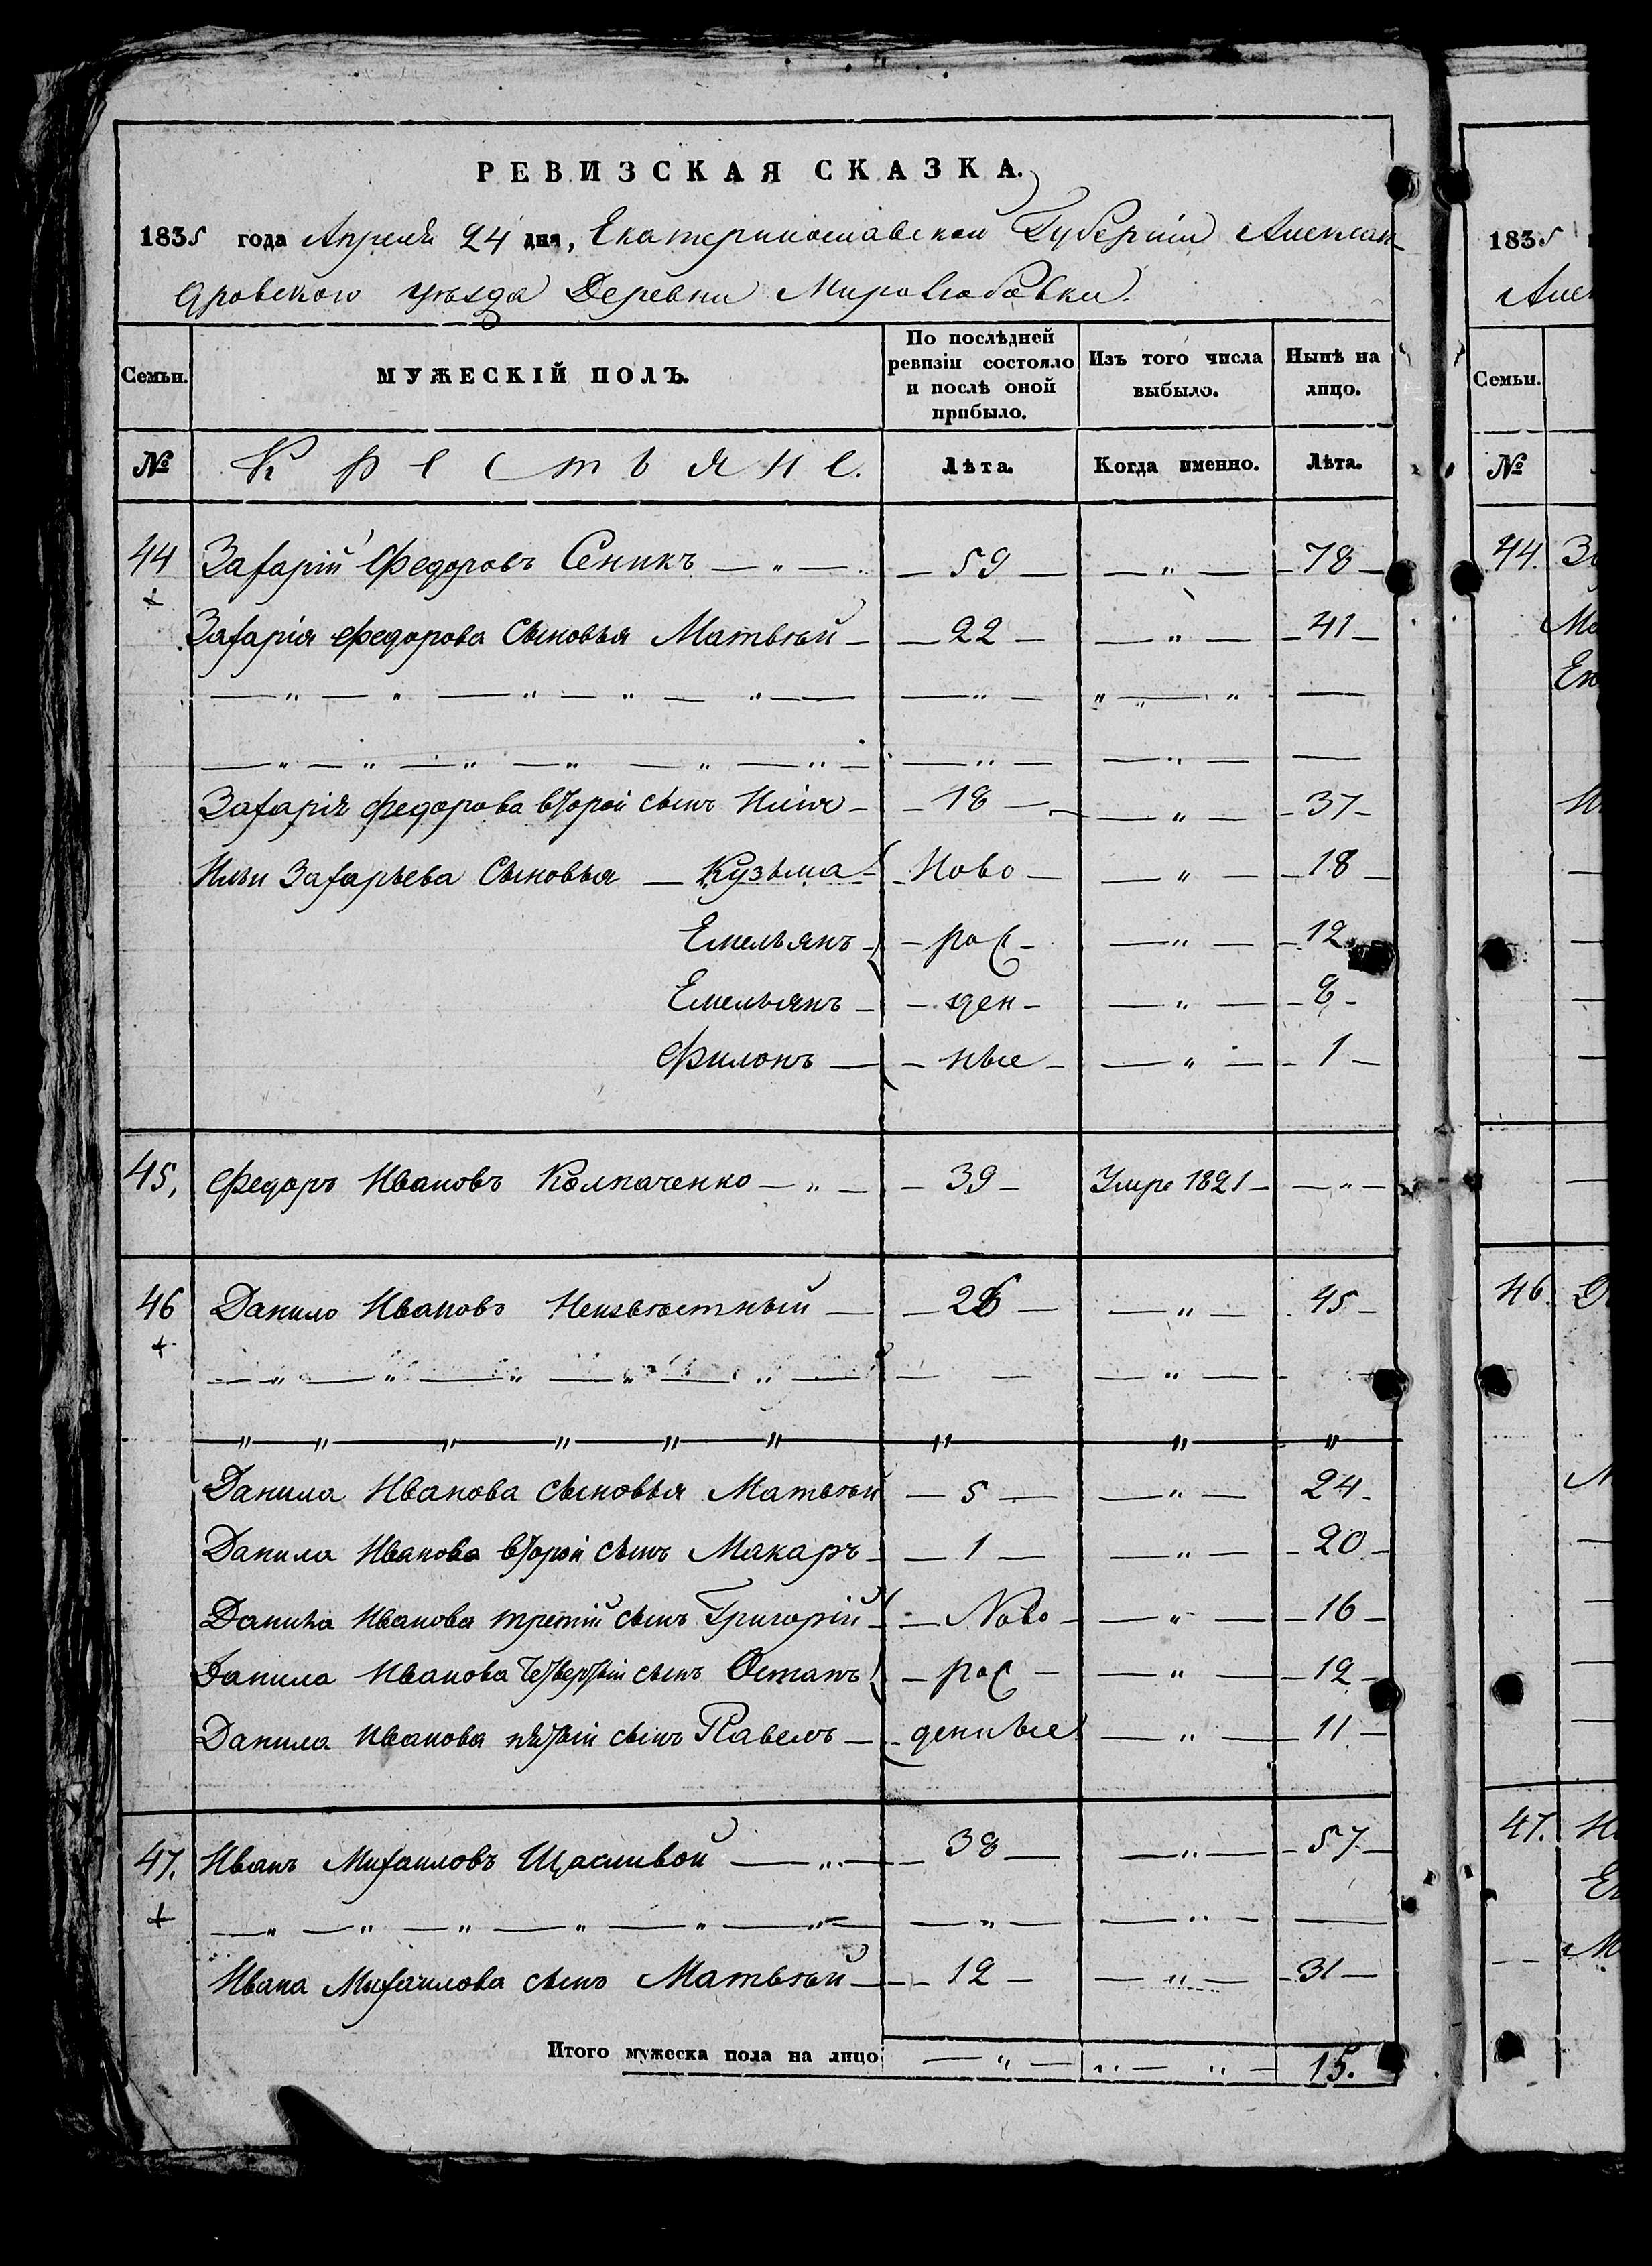 РЕВИЗСКАЯ СКАЗКА.
1835 года Апреля 24 дня, Екатеринославской Губерніи Алексан-
дровскаго уѣзда Деревни Миролюбовки.
Семьи. МУЖЕСКІЙ ПОЛЪ. По послѣдней ревизіи состояло и послѣ оной прибыло. Изъ того числа выбыло. Нынѣ на лицо.
№ Крестьяне. Лѣта. Когда именно. Лѣта.
44 Захарій Федоровъ Сеникъ — „ — — 59 — — „ — — 78 —
+
Захарія Федорова Сыновья Матвѣй — — 22 — — „ — — 41 —
Захарія Федорова второй сынъ Илія — — 18 — — „ — — 37 —
Ильи Захарьева Сыновья — Кузьма — Ново — — „ — — 18 —
Емельянъ — — рож — — „ — — 12
Емельянъ — — ден — — „ — — 8 —
Филонъ — — ные — — „ — — 1 —
45, Федоръ Ивановъ Колпаченко — „ — — 39 — Умре 1821 — — „ —
46 Данило Ивановъ Неизвѣстный — — 26 — — „ — 45 —
+
Данила Иванова сыновья Матвѣй — 5 — — „ — 24 —
Данила Иванова второй сынъ Макаръ — — 1 — — „ — — 20 —
Данила Иванова третій сынъ Григорій — — Ново — — „ — — 16 —
Данила Иванова четвертый сынъ Остапъ — рож — — „ — — 12 —
Данила Иванова пятый сынъ Павелъ — денные — „ — 11 —
47. Иванъ Михайловъ Щасливой — „ — — 38 — — „ — — 57 —
+
Ивана Михайлова сынъ Матвѣй — — 12 — — „ — — 31 —
Итого мужеска пола на лицо — „ — „ — „ — 15.
1835
Семьи.
№
44.
46.
47.